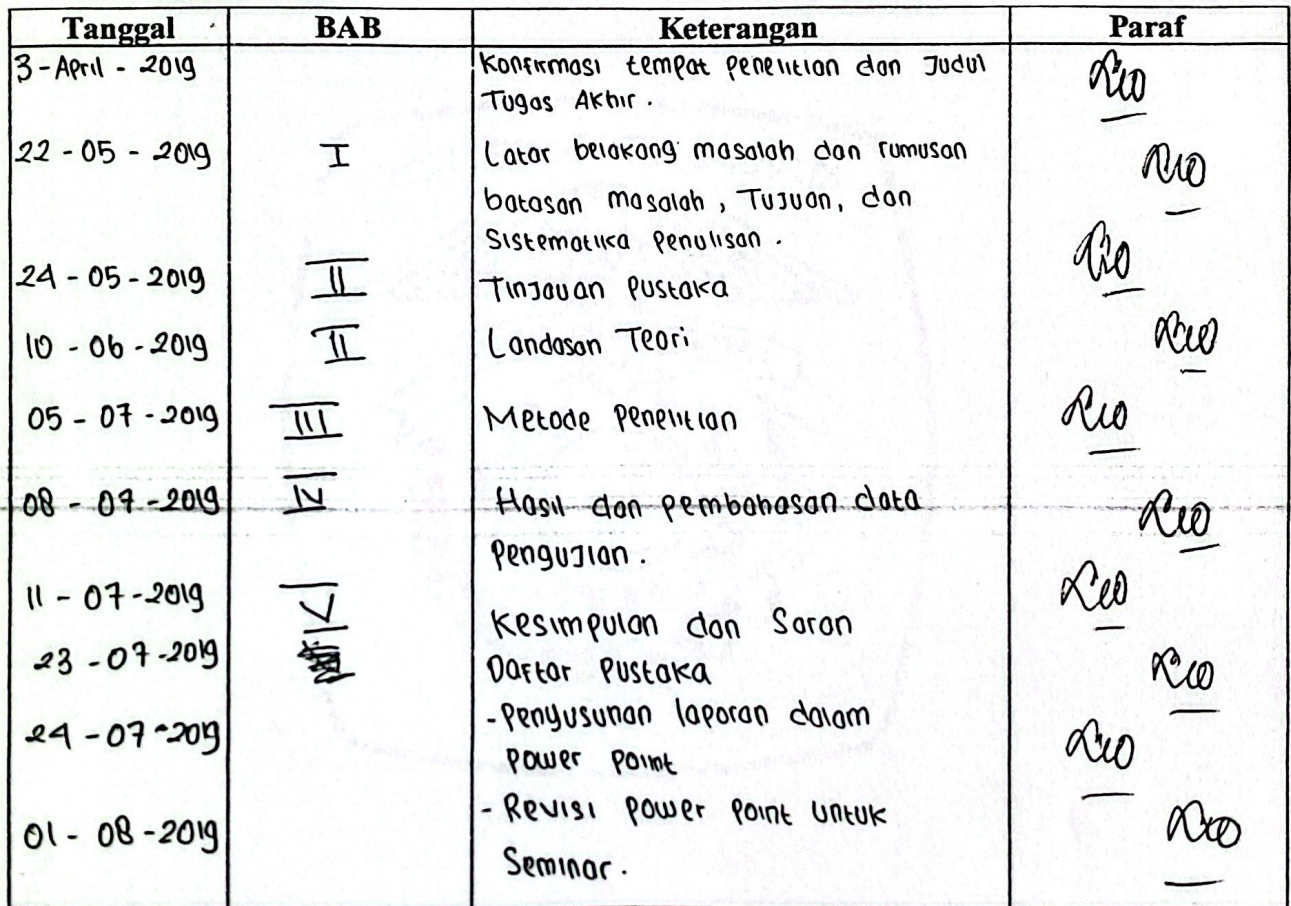 Tanggal BAB Keterangan Paraf
3 - April - 2019 Konfirmasi tempat penelitian dan Judul
Tugas Akhir.
22 - 05 - 2019 I Latar belakang masalah dan rumusan
batasan masalah, Tujuan, dan
Sistematika penulisan.
24 - 05 - 2019 II Tinjauan Pustaka
10 - 06 - 2019 II Landasan Teori
05 - 07 - 2019 III Metode Penelitian
08 - 07 - 2019 IV Hasil dan pembahasan data
Pengujian.
11 - 07 - 2019 V Kesimpulan dan Saran
23 - 07 - 2019 Daftar Pustaka
24 - 07 - 2019 - Penyusunan laporan dalam
Power Point
01 - 08 - 2019 - Revisi Power Point untuk
Seminar.